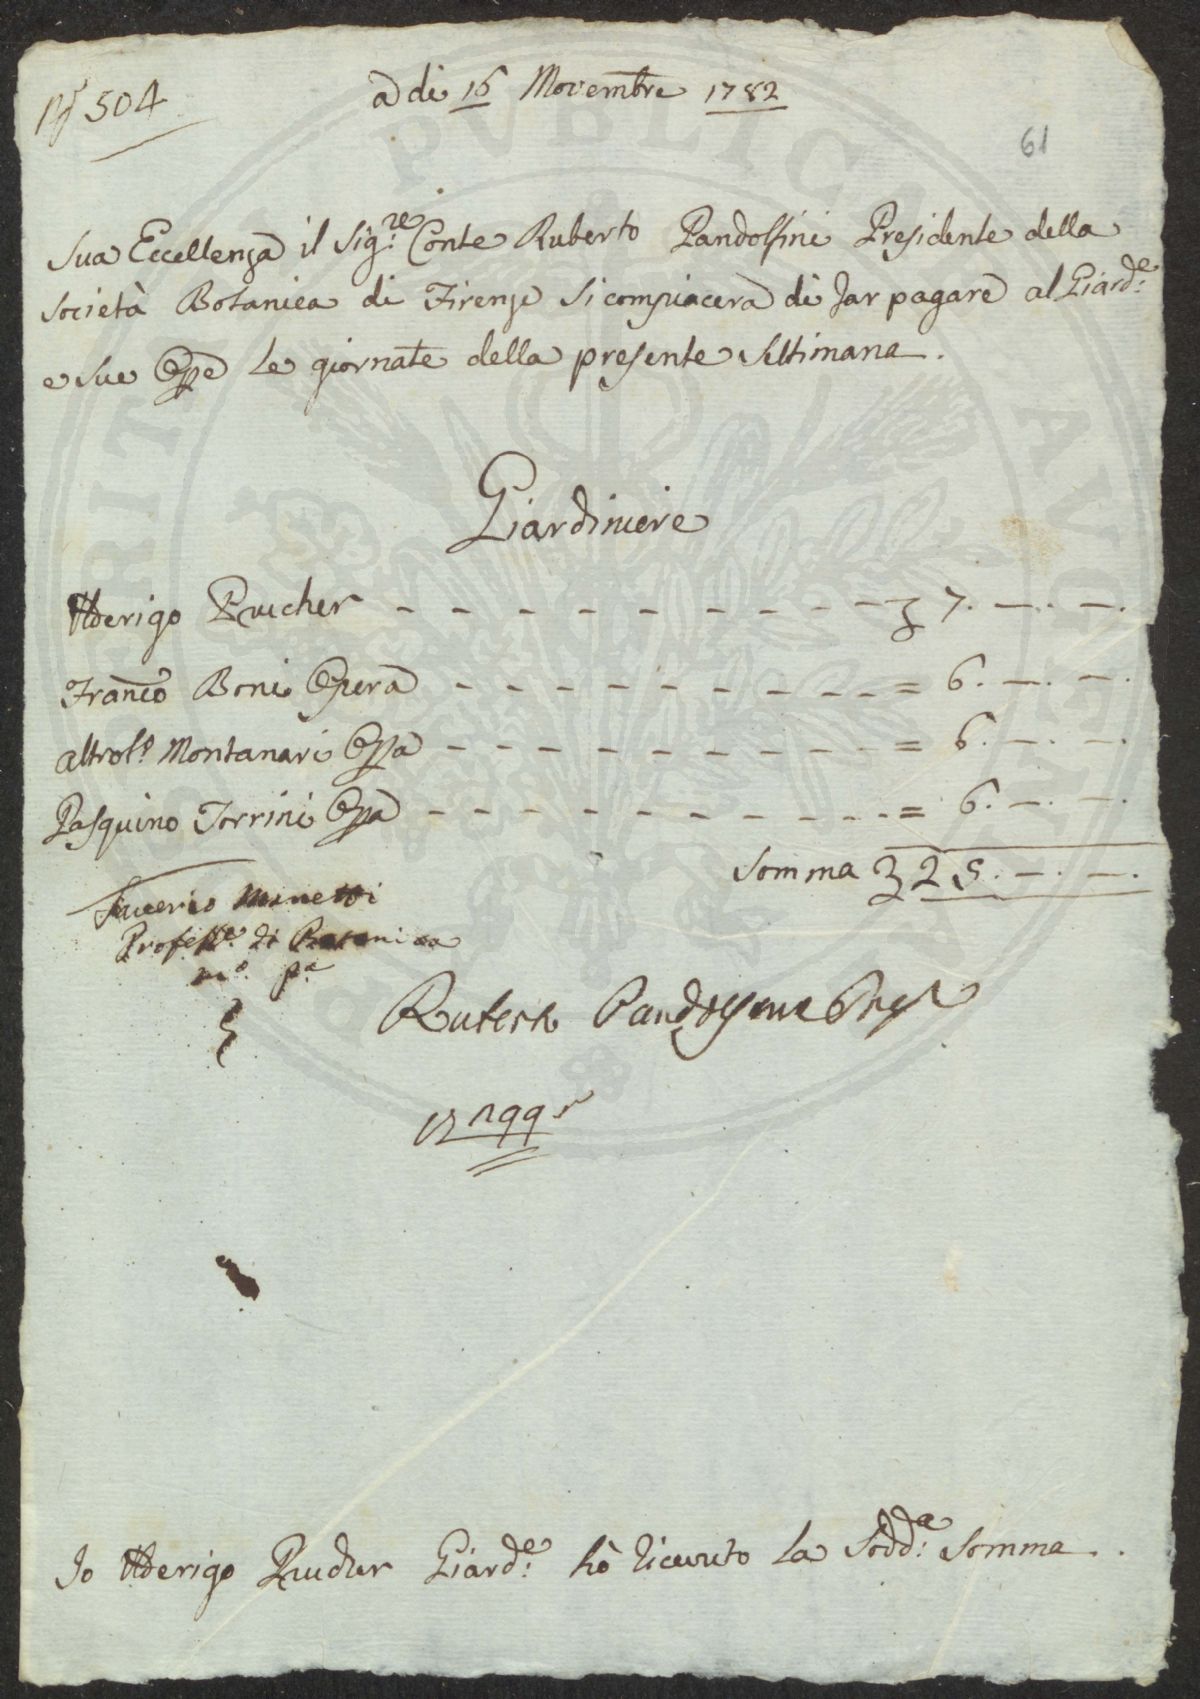 N.° 504
a dì 16 Novembre 1782
61
Sua Eccellenza il Sig.re Conte Ruberto Pandolfini Presidente della
Società Botanica di Firenze si compiacerà di far pagare al Giard.e
e sue Opè le giornate della presente Settimana.
Giardiniere
Ulderigo Prucher - - - - - - - - - - - - £ 7. —. —.
Franco Boni Opera - - - - - - - - - - = 6. —. —.
Montanari Opa - - - - - - - - - - = 6. —. —.
Pasquino Torrini Opa - - - - - - - - - - = 6. —. —.
Somma £ 25. —. —.
Saverio Manetti
Profess.e di Botanica
m.o p.a
Ruberto Pandolfini Pres.
Io Ulderigo Prucher Giard.e hò ricevuto la Sodd.a Somma.
PVBLICAE